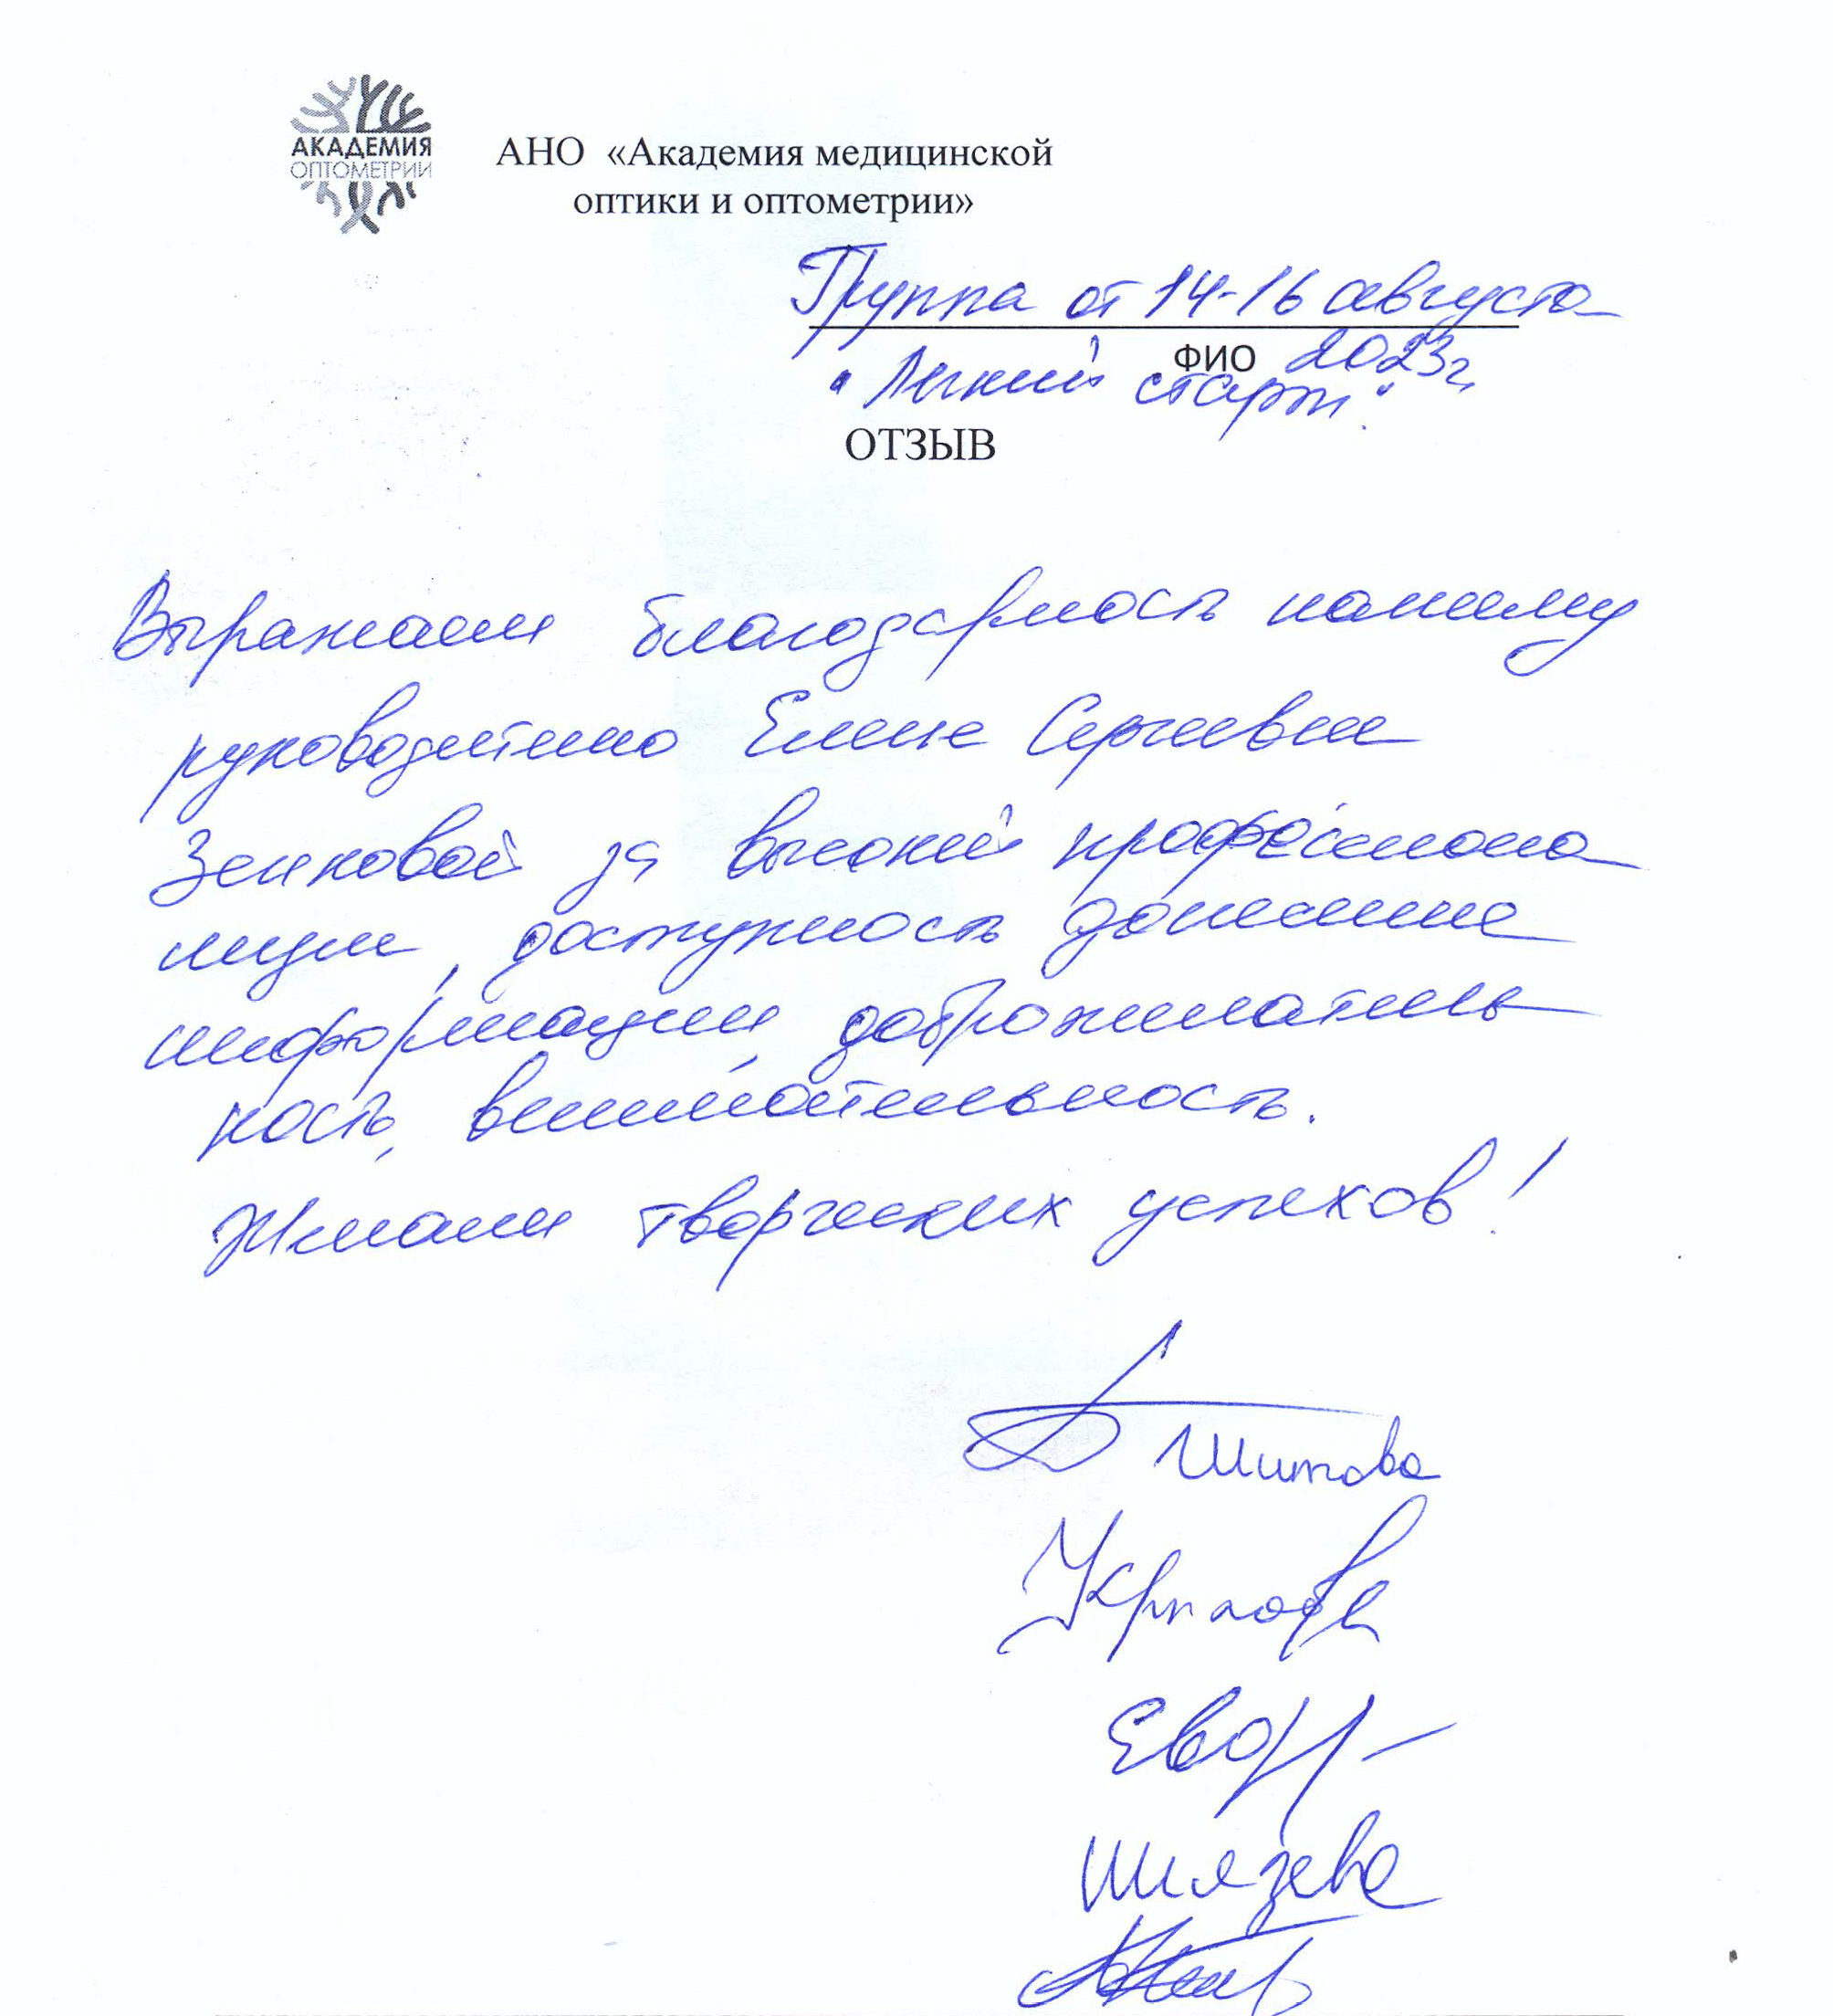 АКАДЕМИЯ
ОПТОМЕТРИИ
АНО «Академия медицинской
оптики и оптометрии»
Группа от 14-16 августа
ФИО 2023г.
"Легкий старт".
ОТЗЫВ
Выражаем благодарность нашему
руководителю Елене Сергеевне
Зенковой за высокий профессиона
лизм, доступность донесение
информации, доброжелатель
ность, внимательность.
Желаем творческих успехов!
Шитова
Шлязева